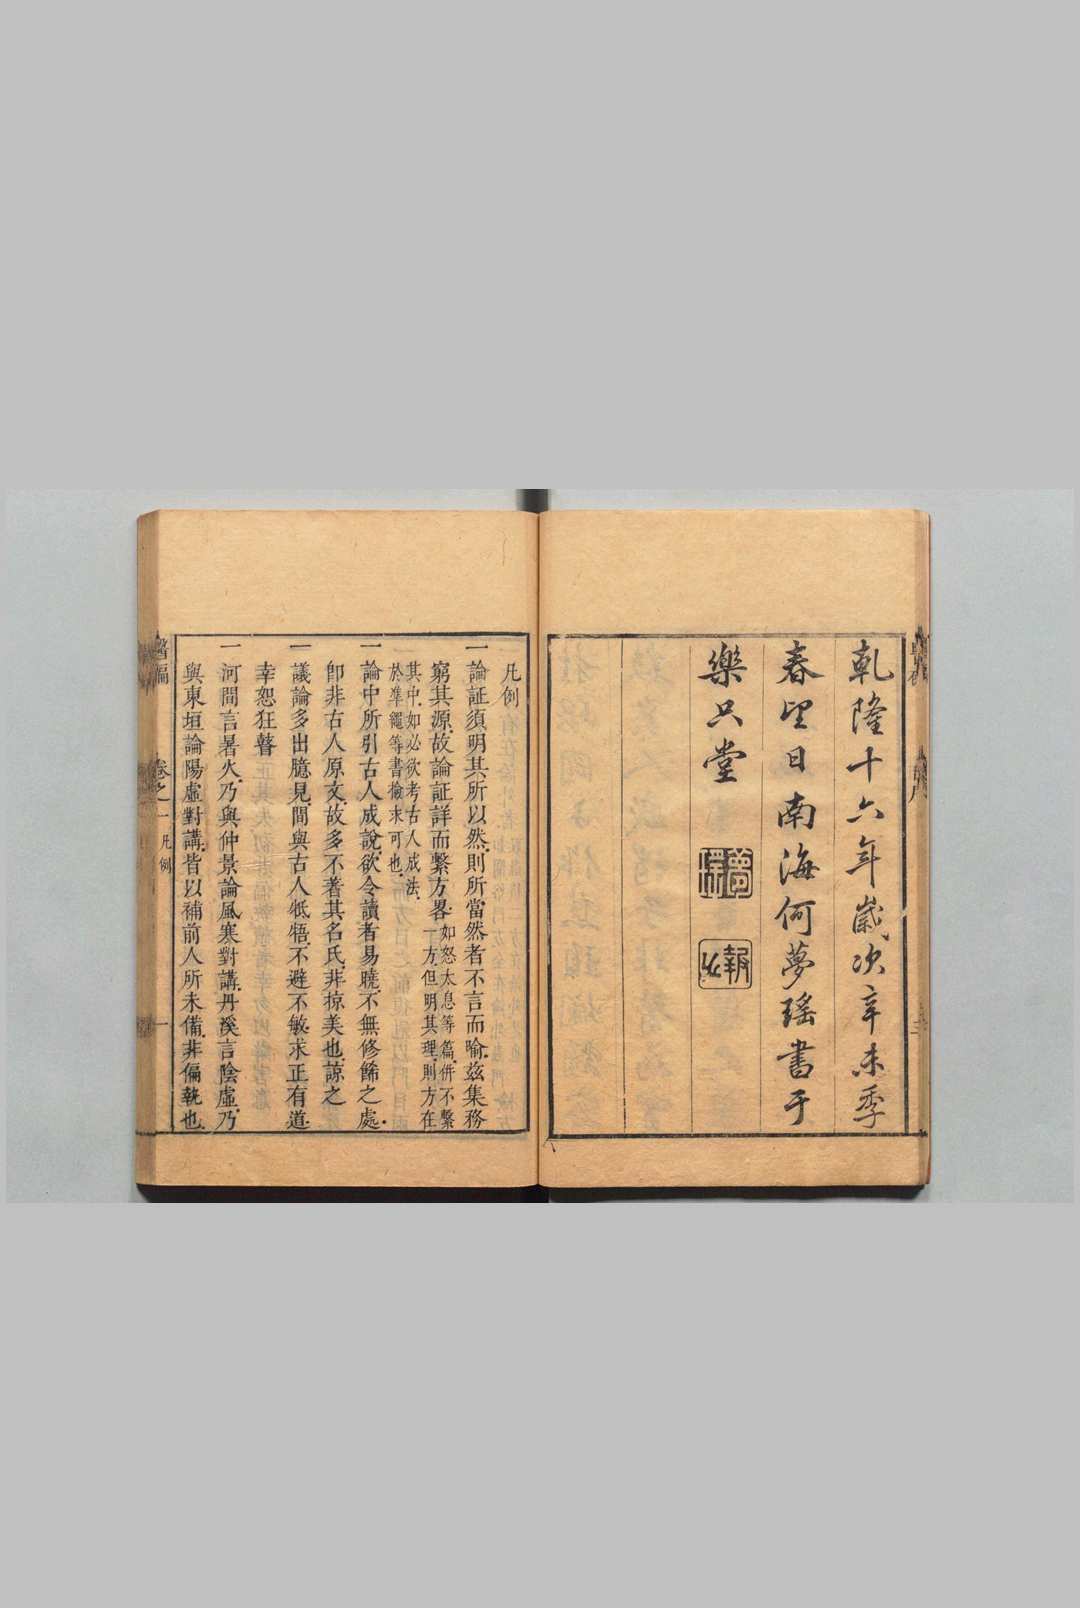 乾隆十六年歲次辛未季
春望日南海何夢瑤書于
樂只堂
夢瑤
報之
凡例
一論証須明其所以然則所當然者不言而喻茲集務
窮其源故論証詳而繫方畧如怒太息等篇併不繫
一方但明其理則方在
其中如必欲考古人成法
於準繩等書撿求可也
一論中所引古人成說欲令讀者易曉不無修餙之處
卽非古人原文故多不著其名氏非掠美也諒之
一議論多出臆見間與古人牴牾不避不敏求正有道
幸恕狂瞽
一河間言暑火乃與仲景論風寒對講丹溪言陰虛乃
與東垣論陽虛對講皆以補前人所未備非偏執也
醫碥 卷之一 凡例 一